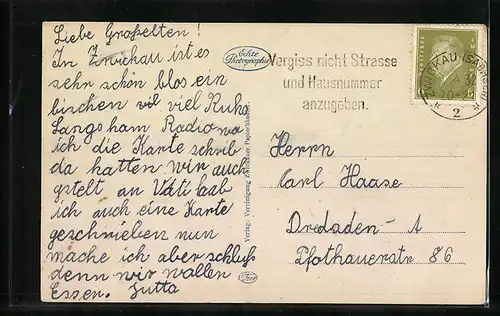 Liebe Großelten!
In Zwickau ist es
sehr schön blos ein
bischen vil viel Ruhe
Langsham Radio wo
ich die Karte schrib
da hatten wir auch
gstelt an Vati hab
ich auch eine Karte
geschrieben nun
mache ich aber schluß
denn wir wollen
Essen. Jutta
Echte
Photographie
Verlag: Vereinigung Zwickauer Papierhändler
Vergiss nicht Strasse
und Hausnummer
anzugeben.
ZWICKAU (SACHSEN)
2
Herrn
Carl Haase
Dredaden-A
Pfothauerstr 86